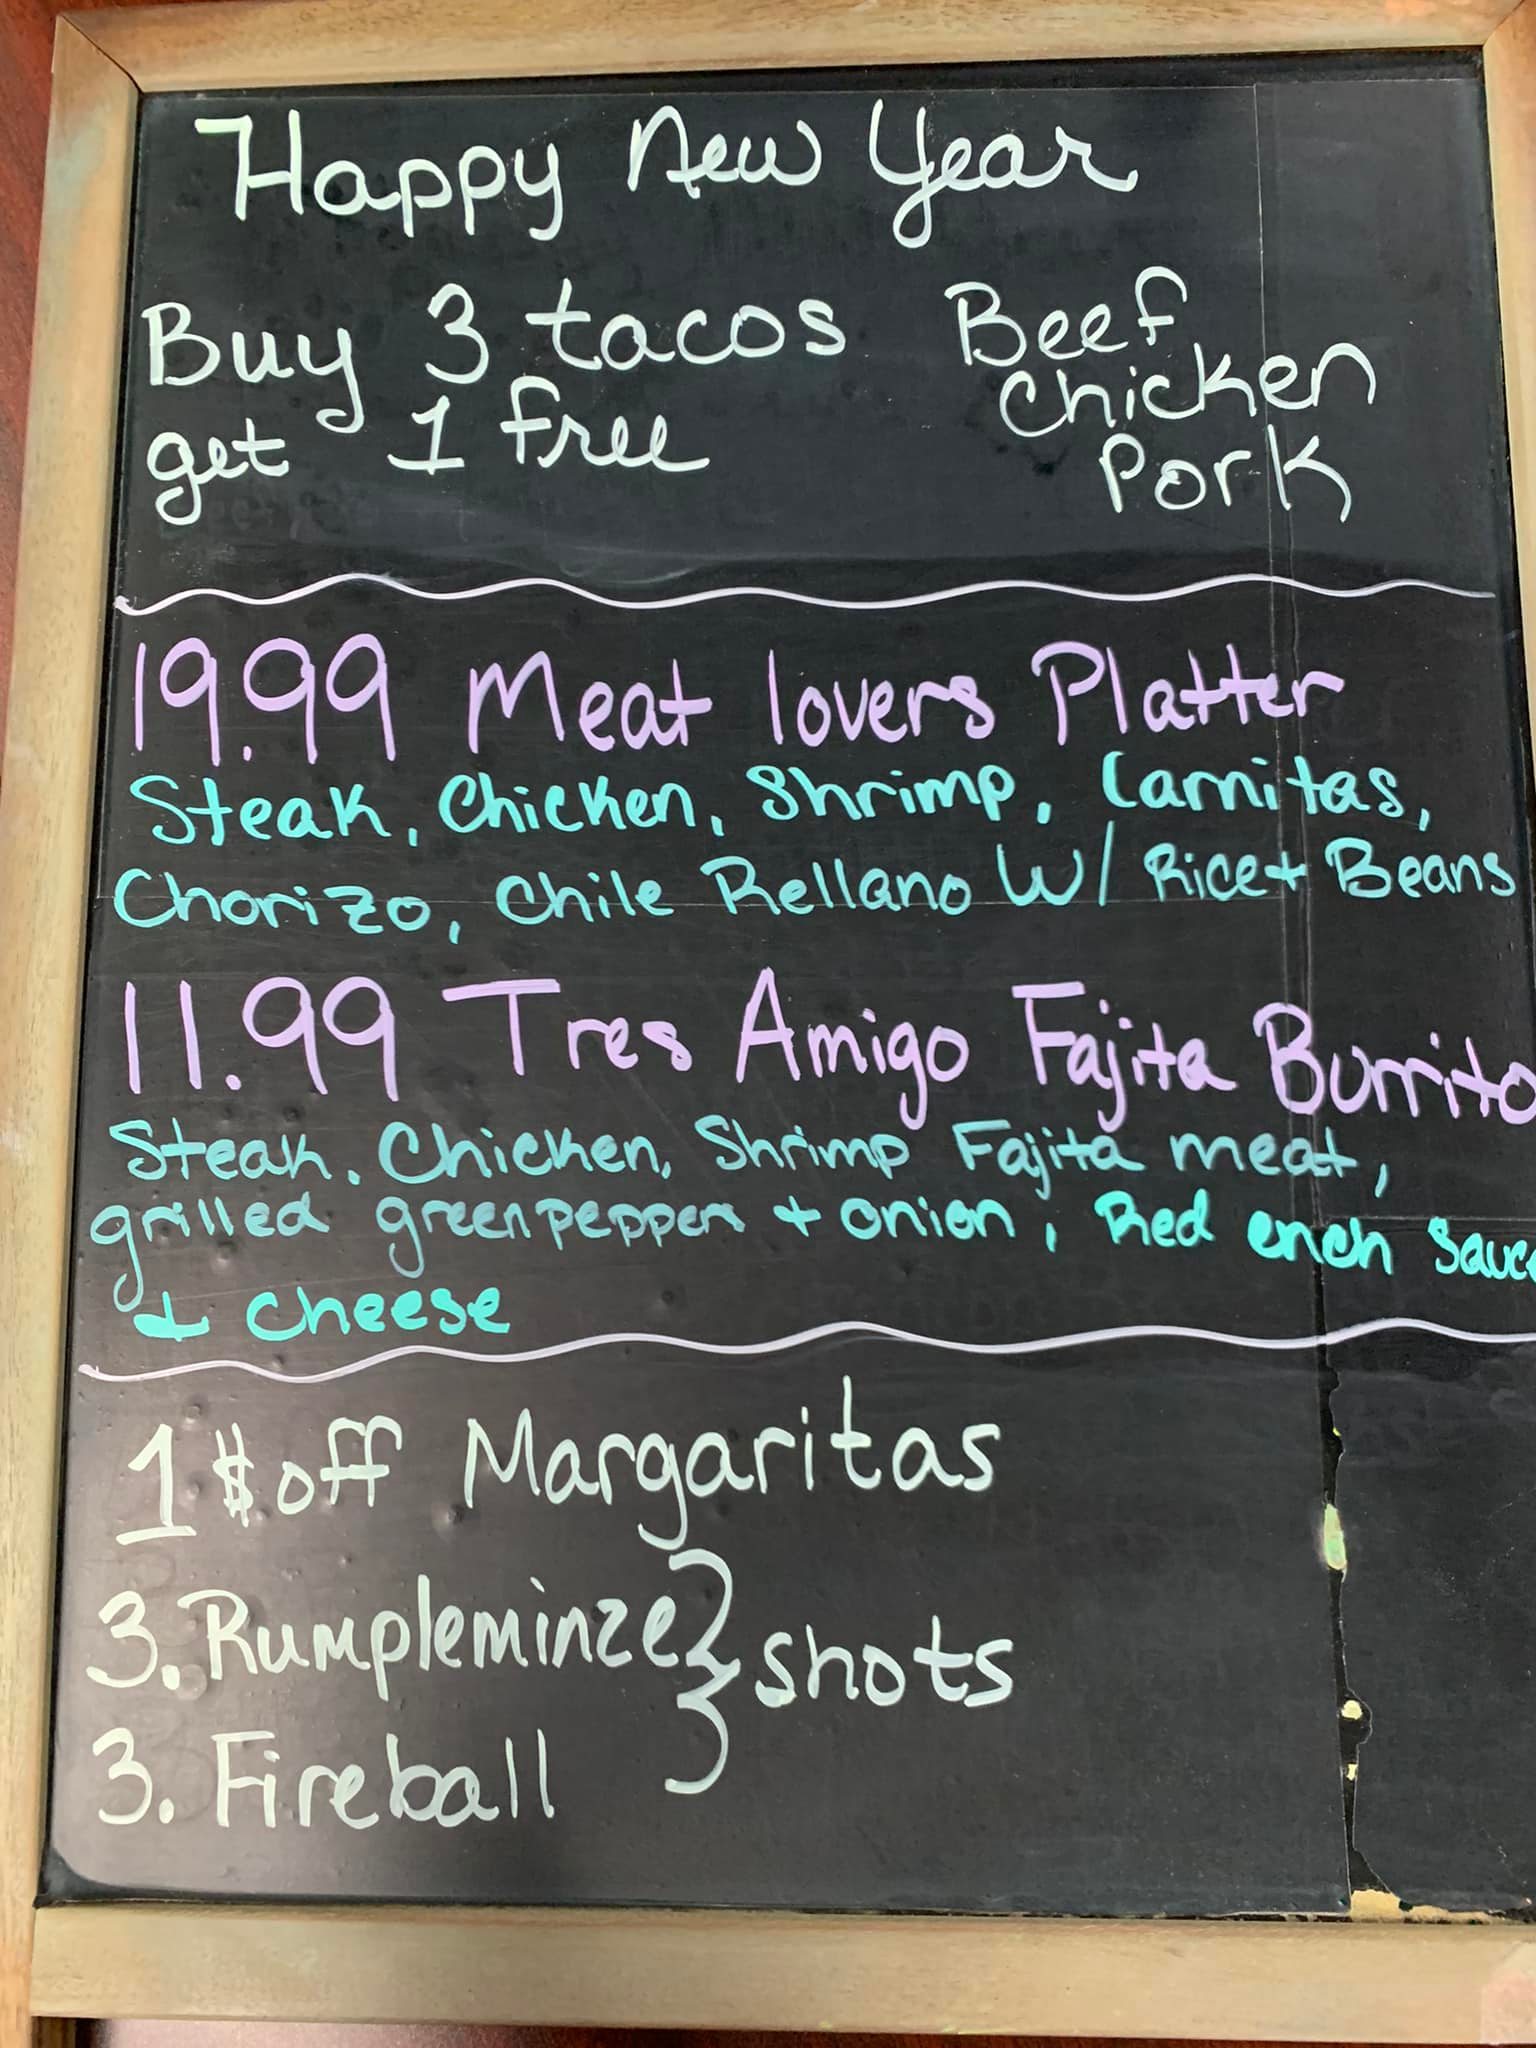 Happy New Year
Buy 3 tacos
get 1 free
Beef
Chicken
Pork
19.99 Meat lovers Platter
Steak, Chicken, Shrimp, Carnitas,
Chorizo, Chile Rellano W/ Rice + Beans
11.99 Tres Amigo Fajita Burrito
Steak. Chicken, Shrimp Fajita meat,
grilled green peppers + onion, Red ench Sauce
+ Cheese
1 $ off Margaritas
3. Rumpleminze } shots
3. Fireball